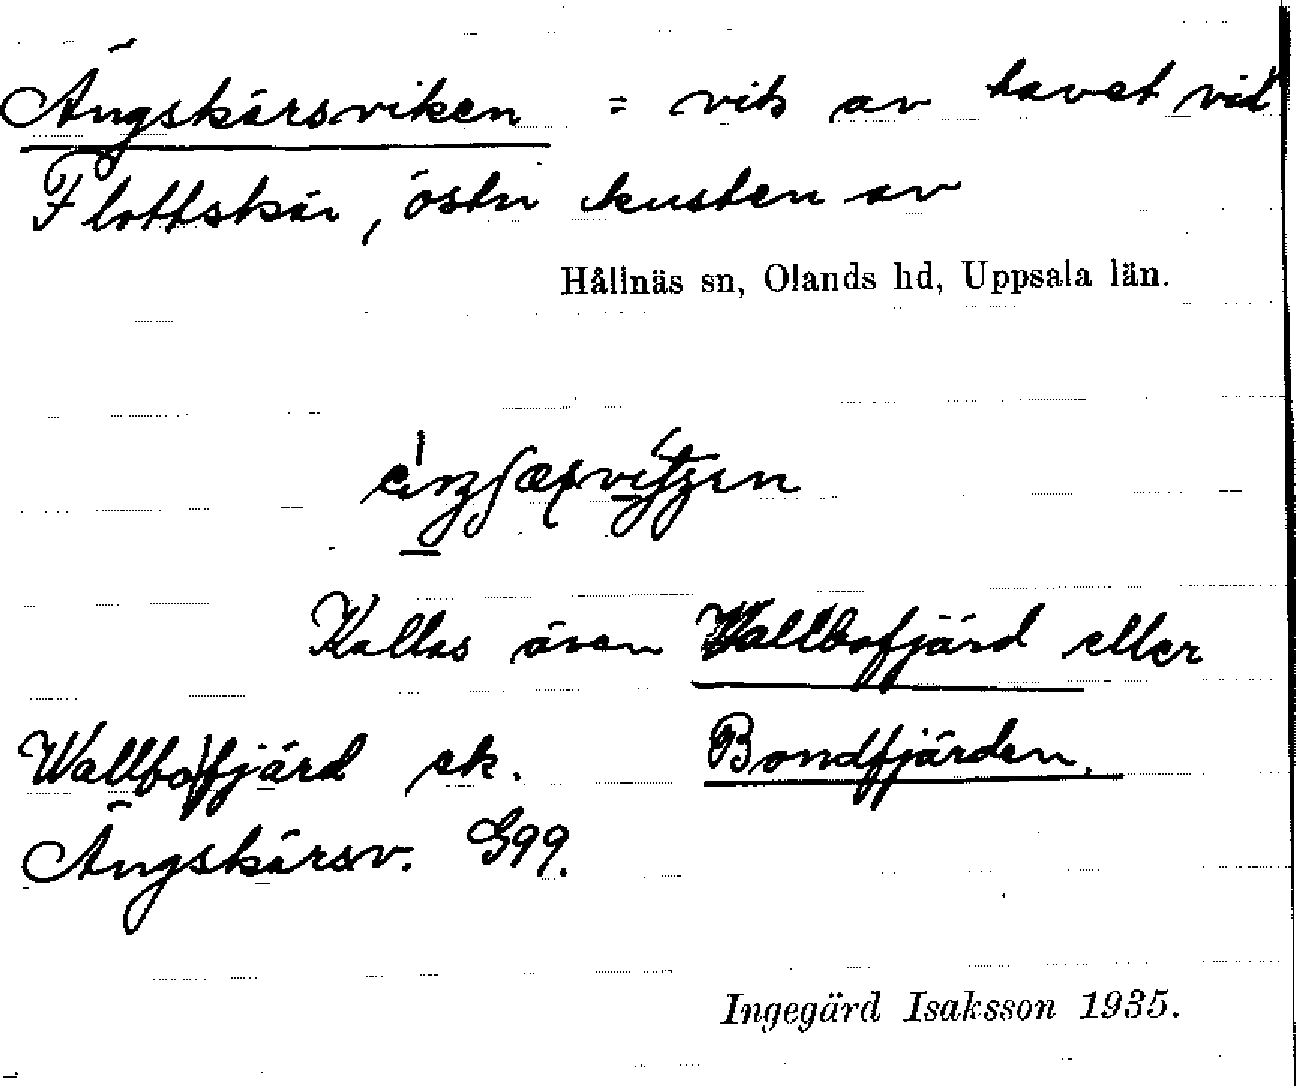 Ängskärsviken = vik av havet vid
Flottskär, östr kusten av
Hållnäs sn, Olands hd, Uppsala län.
Kallas även Wallbofjärd eller
Bondfjärden.
Wallbofjärd ek.
Ängskärsv. G99.
Ingegärd Isaksson 1935.